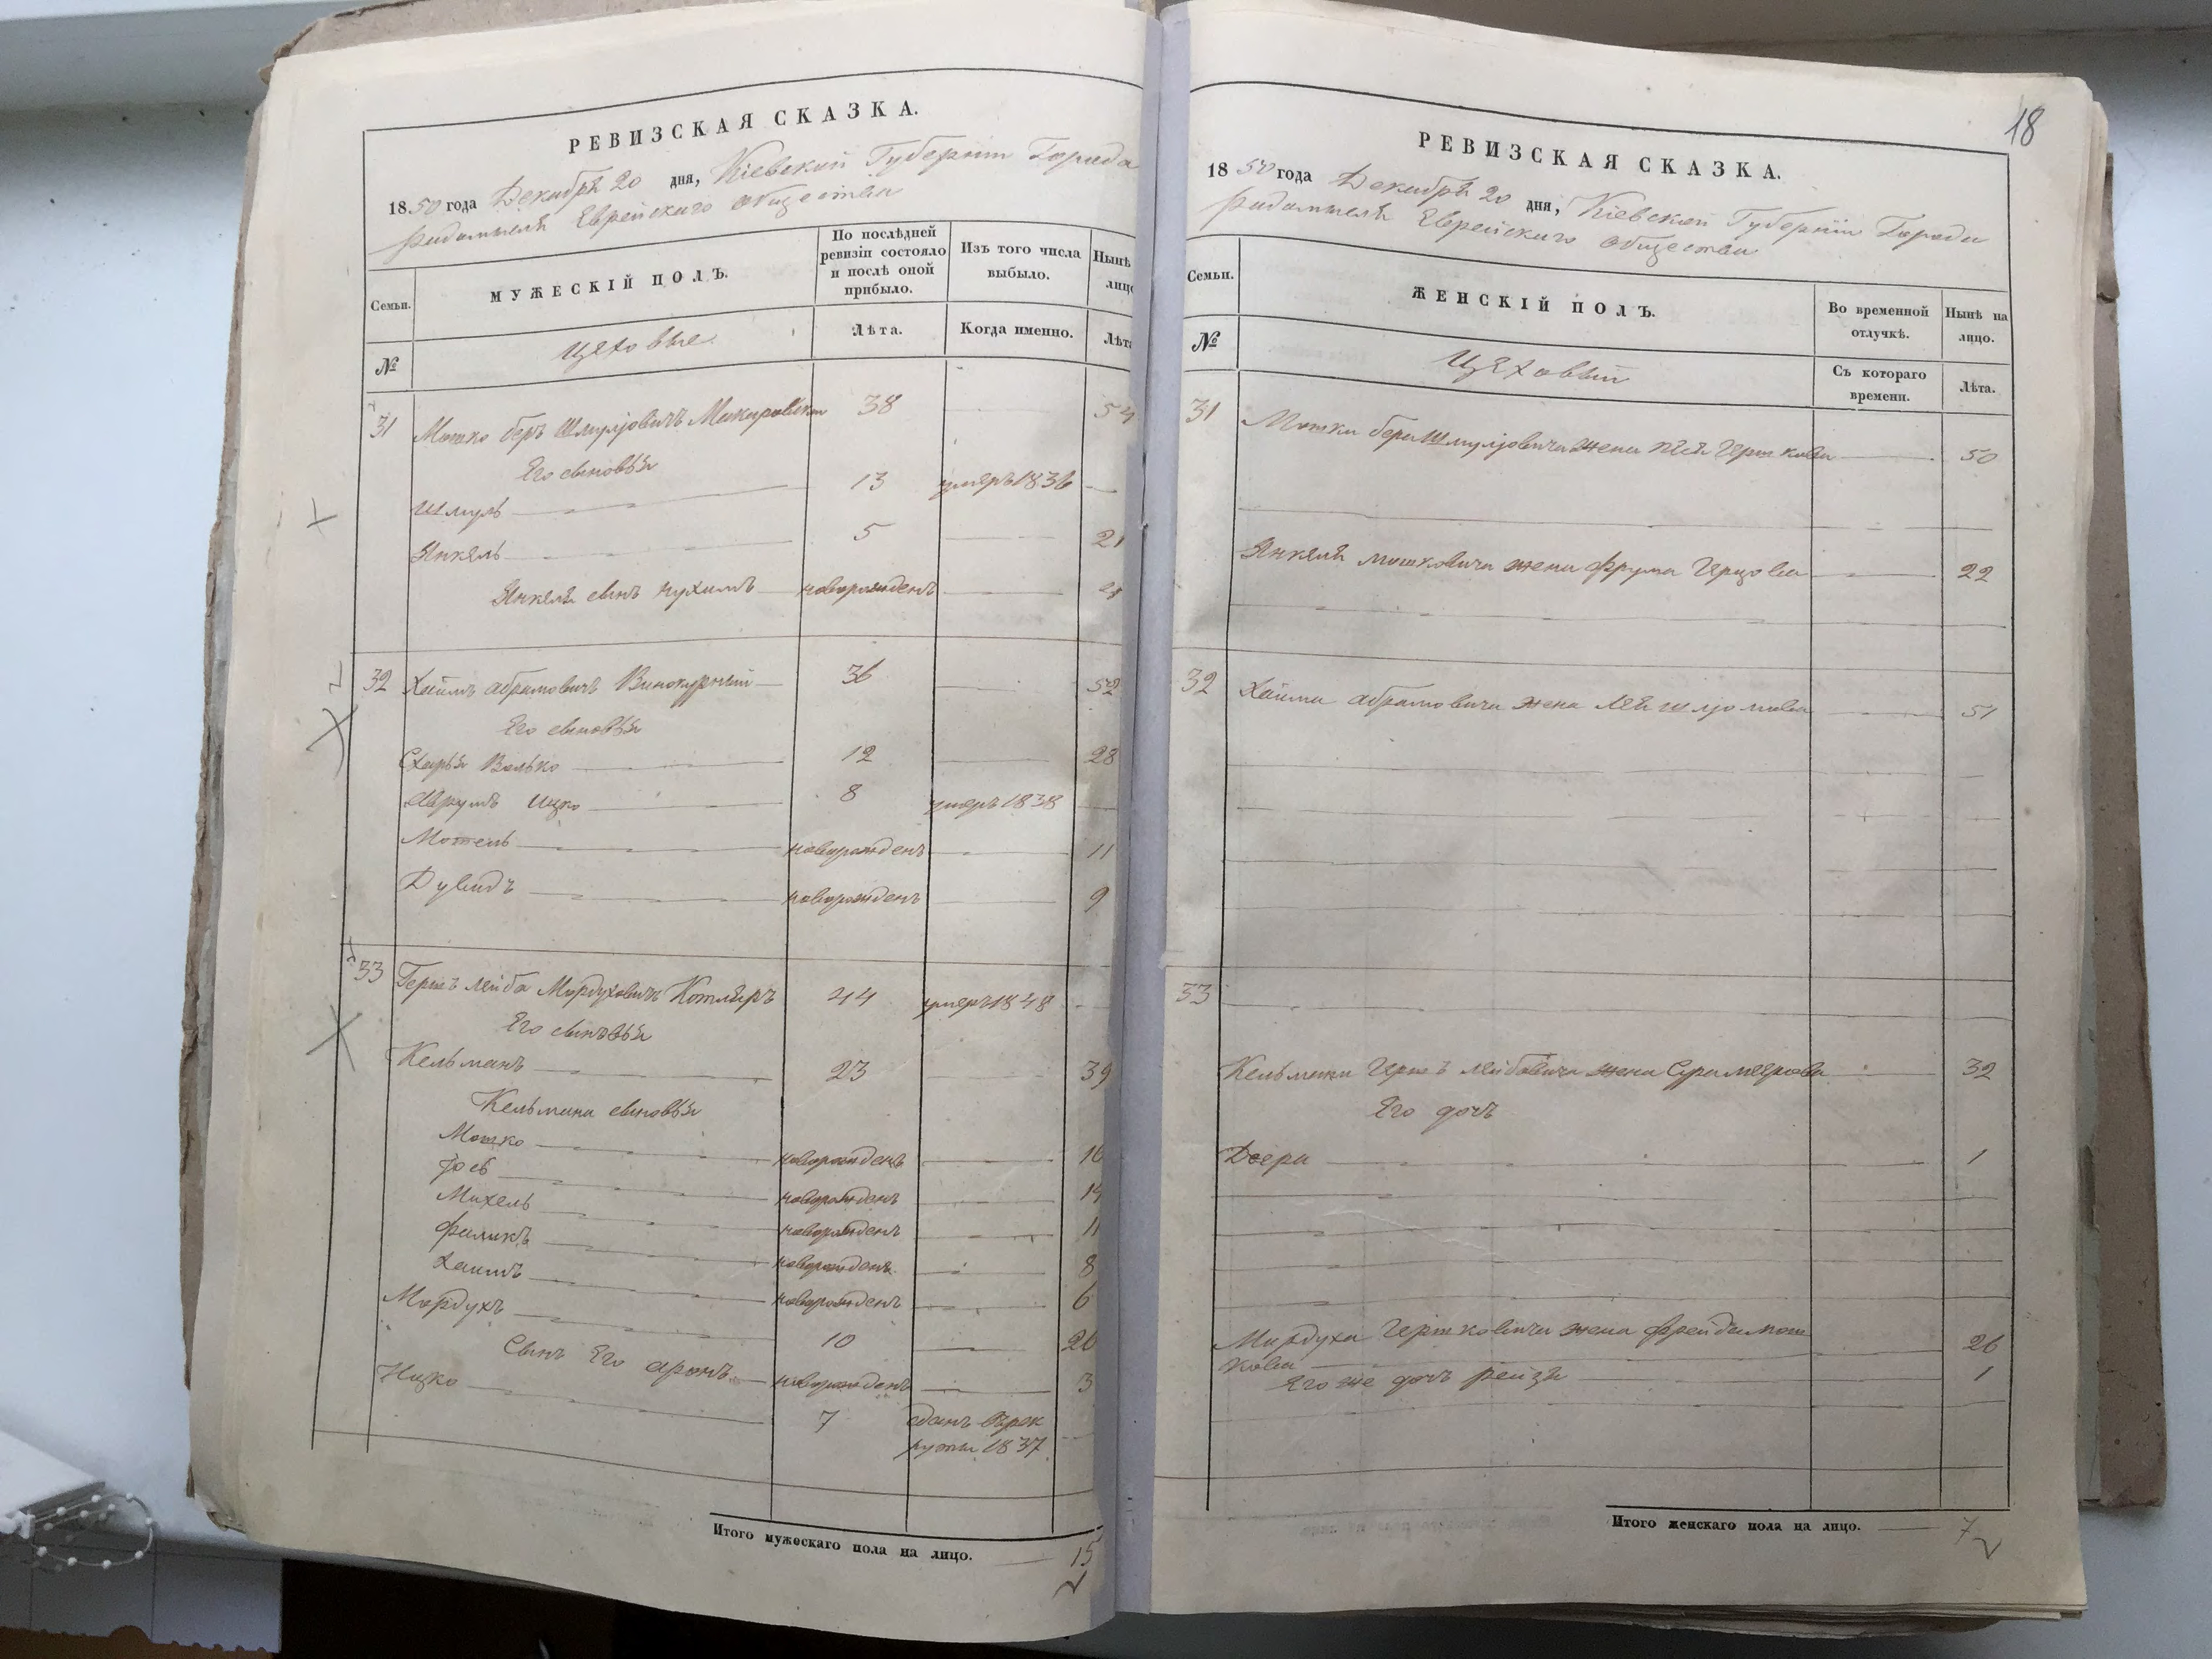 РЕВИЗСКАЯ СКАЗКА.
1850 года Декабря 20 дня, Кіевской Губерніи Города
Радомысля Еврейскаго общества
Семьи. МУЖЕСКІЙ ПОЛЪ. По послѣдней ревизіи состояло и послѣ оной прибыло. Изъ того числа выбыло. Нынѣ лицо
№ Цеховые Лѣта. Когда именно. Лѣта
31 Мошко беръ Шмулјовичъ Макаровски 38 54
Его сыновья
Шмуль 13 умеръ 1836
Янкель 5 21
Янкеля сынъ Нухимъ новорожденъ
32 Хаимъ абрамовичъ Винокурный 36 52
Его сыновья
Схарья Волько 12 28
Аврумъ Ицко 8 умеръ 1838
Мотель новорожденъ 11
Дувидъ новорожденъ 9
33 Гершъ лейба Мордуховичъ Котляръ 44 умеръ 1848
Его сыновья
Кельманъ 23 39
Кельмана сыновья
Мошко новорожденъ 16
Іосъ новорожденъ 14
Михель новорожденъ 11
новорожденъ 8
Хаимъ новорожденъ 6
Мордухъ 10 26
Сынъ Его аронъ новорожденъ 3
Ицко 7 сданъ въ рек
руты 1837
Итого мужескаго пола на лицо. 15
18
РЕВИЗСКАЯ СКАЗКА.
1850 года Декабря 20 дня, Кіевской Губерніи Города
Радомысля Еврейскаго общества
Семьи. ЖЕНСКІЙ ПОЛЪ. Во временной отлучкѣ. Нынѣ на лицо.
№ Цеховый Съ котораго времени. Лѣта.
31 Мошка бера Шмулјовича жена Гершкова 50
Янкеля мошковича жена фрума Герцова 22
32 Хаима абрамовича жена Лея шлјомова 51
33
Кельмана Гершъ лейбовича жена Сура меерова 32
Его дочь
Двера 1
Мордуха Гершковича жена фрейда мош
кова 26
Его же дочь рейзя 1
Итого женскаго пола на лицо. 7